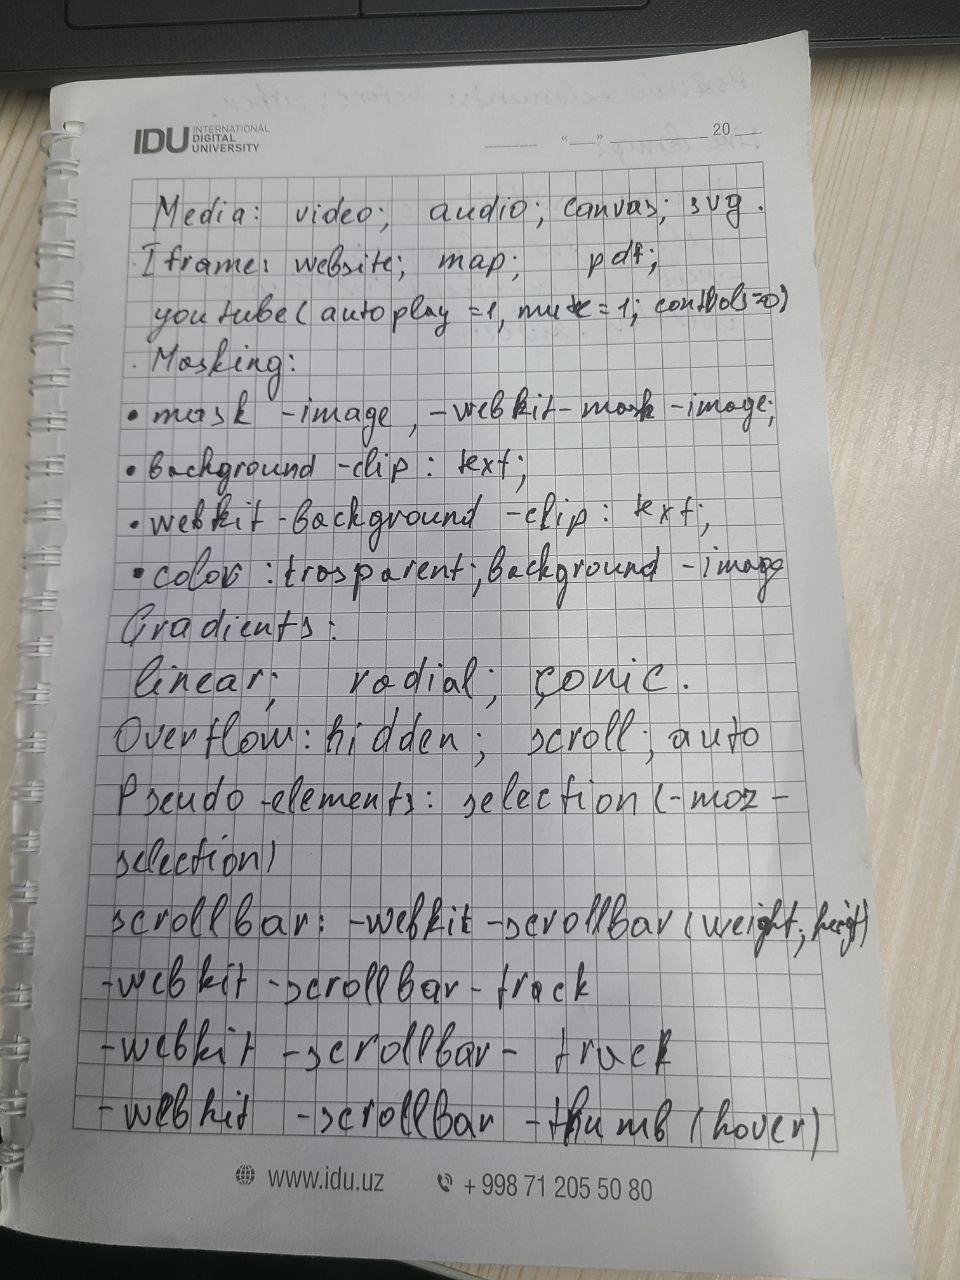 IDU INTERNATIONAL
DIGITAL
UNIVERSITY
"__" 20
Media: video; audio; canvas; svg.
Iframe: website; map; pdf;
youtube(autoplay=1, mute=1; controls=0)
Masking:
• mask -image, -webkit-mask-image;
• background -clip: text;
• webkit-background -clip: text;
• color: trasparent; background -image
Gradients:
linear; radial; conic.
Overflow: hidden; scroll; auto
Pseudo-elements: selection(-moz-
selection)
scrollbar: -webkit-scrollbar(weight; heigt)
-webkit-scrollbar-track
-webkit-scrollbar- truck
-webkit -scrollbar -thumb(hover)
www.idu.uz + 998 71 205 50 80